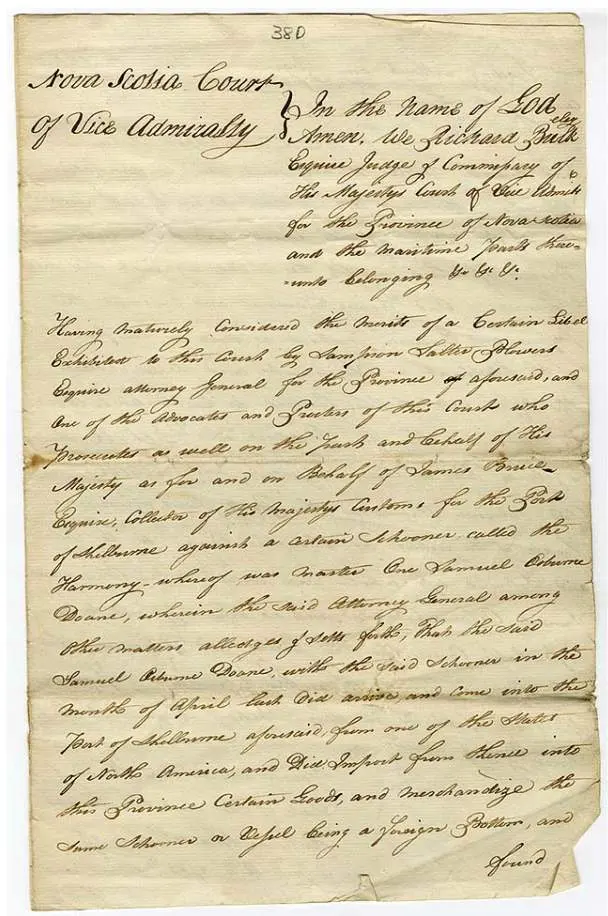 38D
Nova Scotia Court
of Vice Admiralty
In the Name of God
Amen. We Richard Bulkeley
Esquire Judge & Commissary of
His Majestys Court of Vice Admlt
for the Province of Nova Scotia
and the maritime Parts there=
=unto belonging &c &c &c.
Having maturely Considered the merits of a Certain Libel
Exhibited to this Court by Sampson Salter Blowers
Esquire Attorney General for the Province of aforesaid, and
One of the Advocates and Procters of this Court who
Prosecutes as well on the part and behalf of His
Majesty as for and on Behalf of James Bruce
Esquire, Collector of His Majestys Customs for the Port
of Shelburne against a certain Schooner called the
Harmony - whereof was master One Samuel Osburne
Doane, wherein the said Attorney General among
Other matters alledges & Setts forth, That the said
Samuel Osburne Doane, with the said Schooner in the
month of April last Did arrive, and come into the
Port of Shelburne aforesaid, from one of the States
of North America, and Did, Import from thence into
this Province Certain Goods, and Merchandize the
same Schooner or Vessel being a Foreign Bottom, and
found